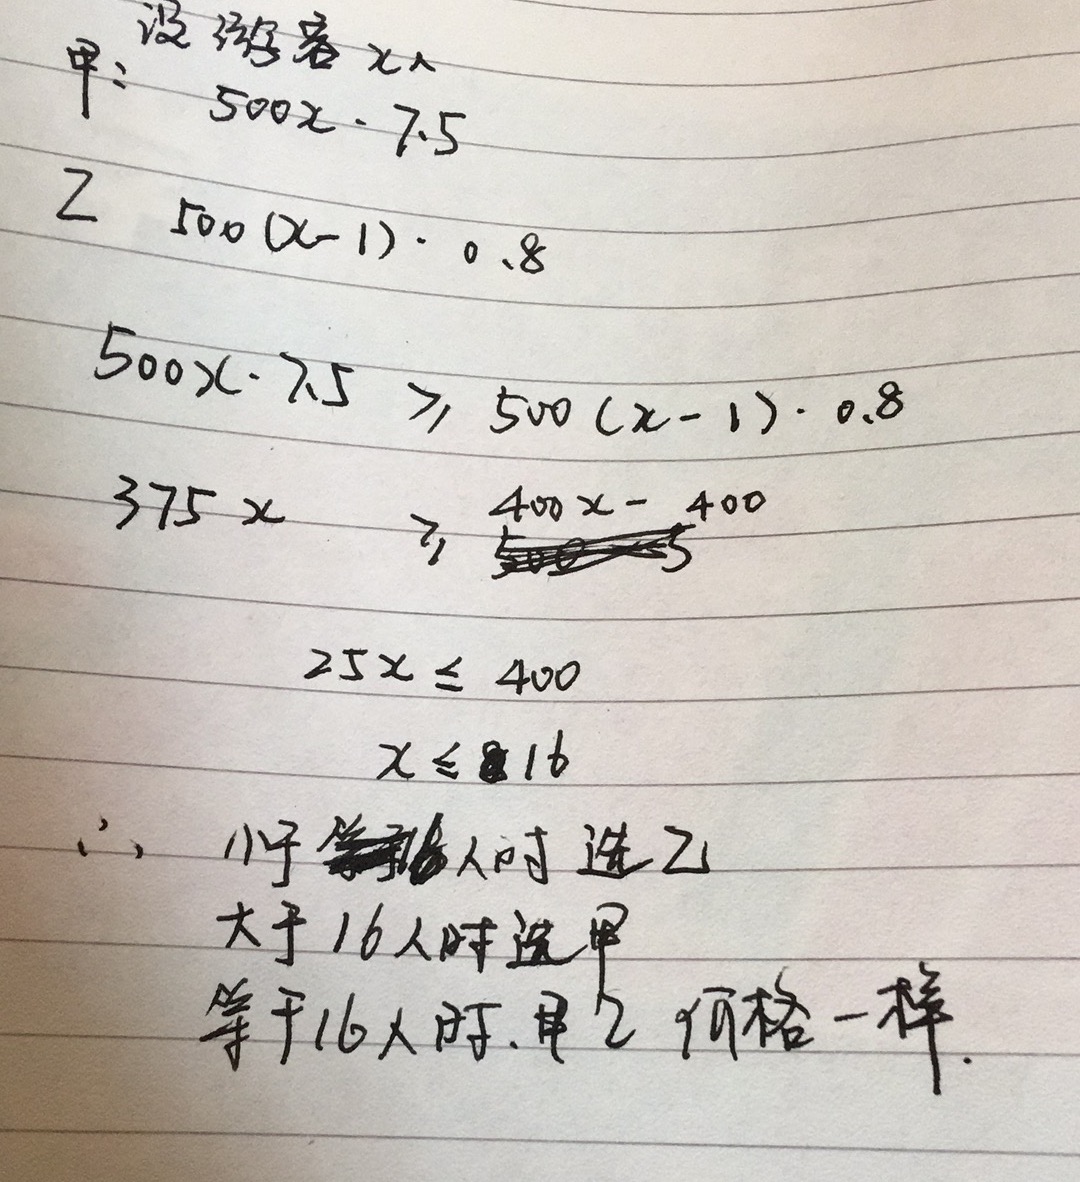 设游客x人
甲: 500x · 7.5
乙 500(x-1) · 0.8
500x · 7.5 ≥ 500(x-1) · 0.8
375x ≥ 400x - 400
25x ≤ 400
x ≤ 16
∴ 小于16人时选乙
大于16人时选甲
等于16人时.甲乙价格一样.